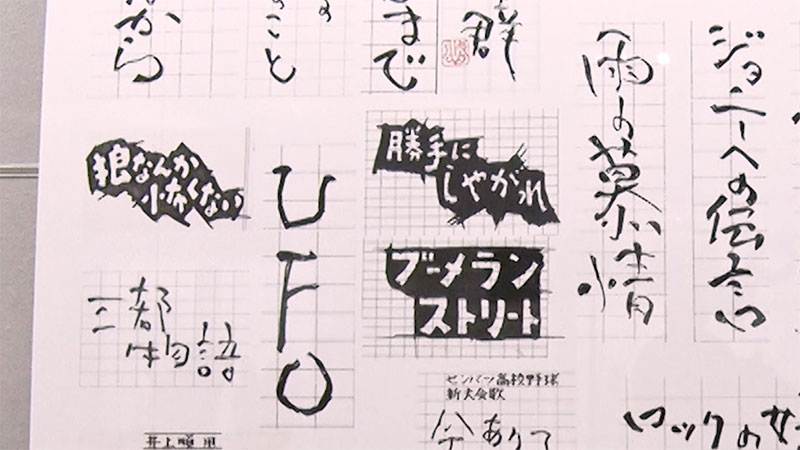 ジョニーへの伝言
雨の慕情
群
まで
のこと
ながら
狼なんか
怖くない
UFO
勝手に
しやがれ
ブーメラン
ストリート
三都
物語
センバツ高校野球
新大会歌
今ありて
ロックの